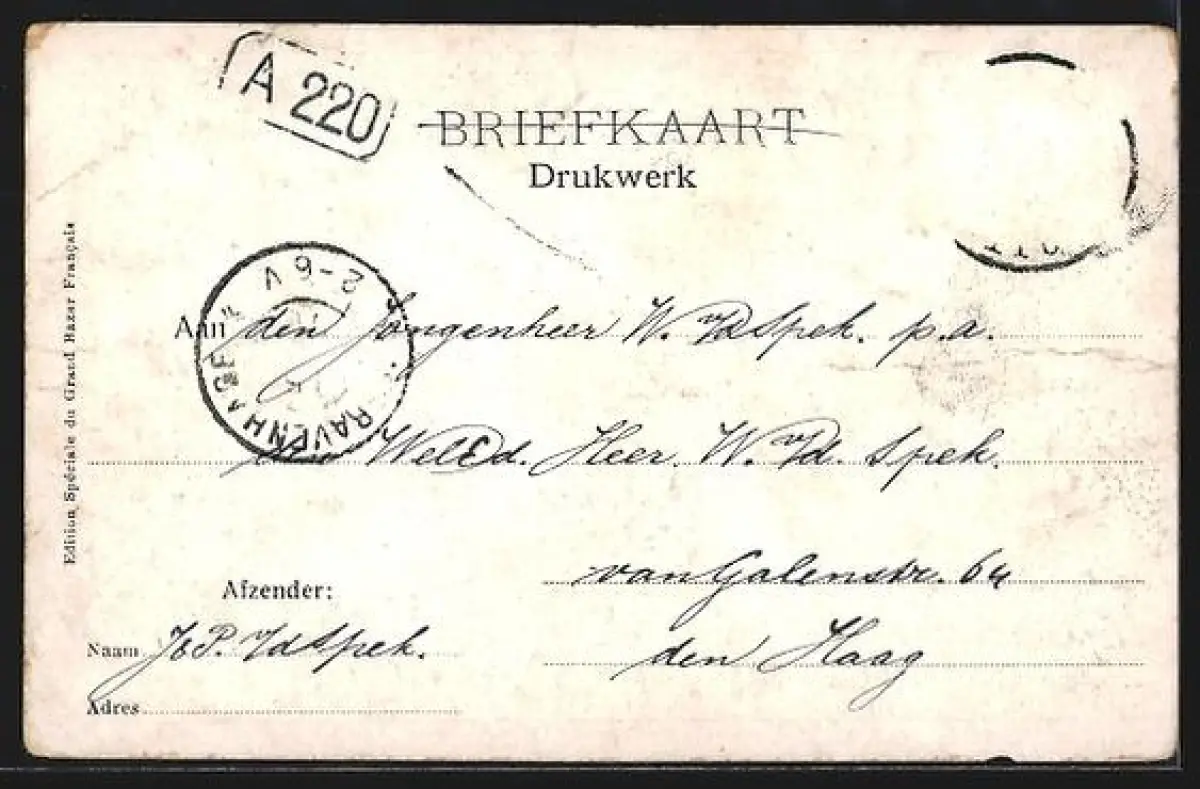 A 220
BRIEFKAART
Drukwerk
2-6 V
'S GRAVENHAGE
Aan den Jongenheer W. v/d Spek. p.a.
den WelEd. Heer. W. v/d. Spek.
van Galenstr. 64
den Haag
Afzender:
Naam J.P. v/d Spek.
Adres
Edition Spéciale du Grand Bazar Français